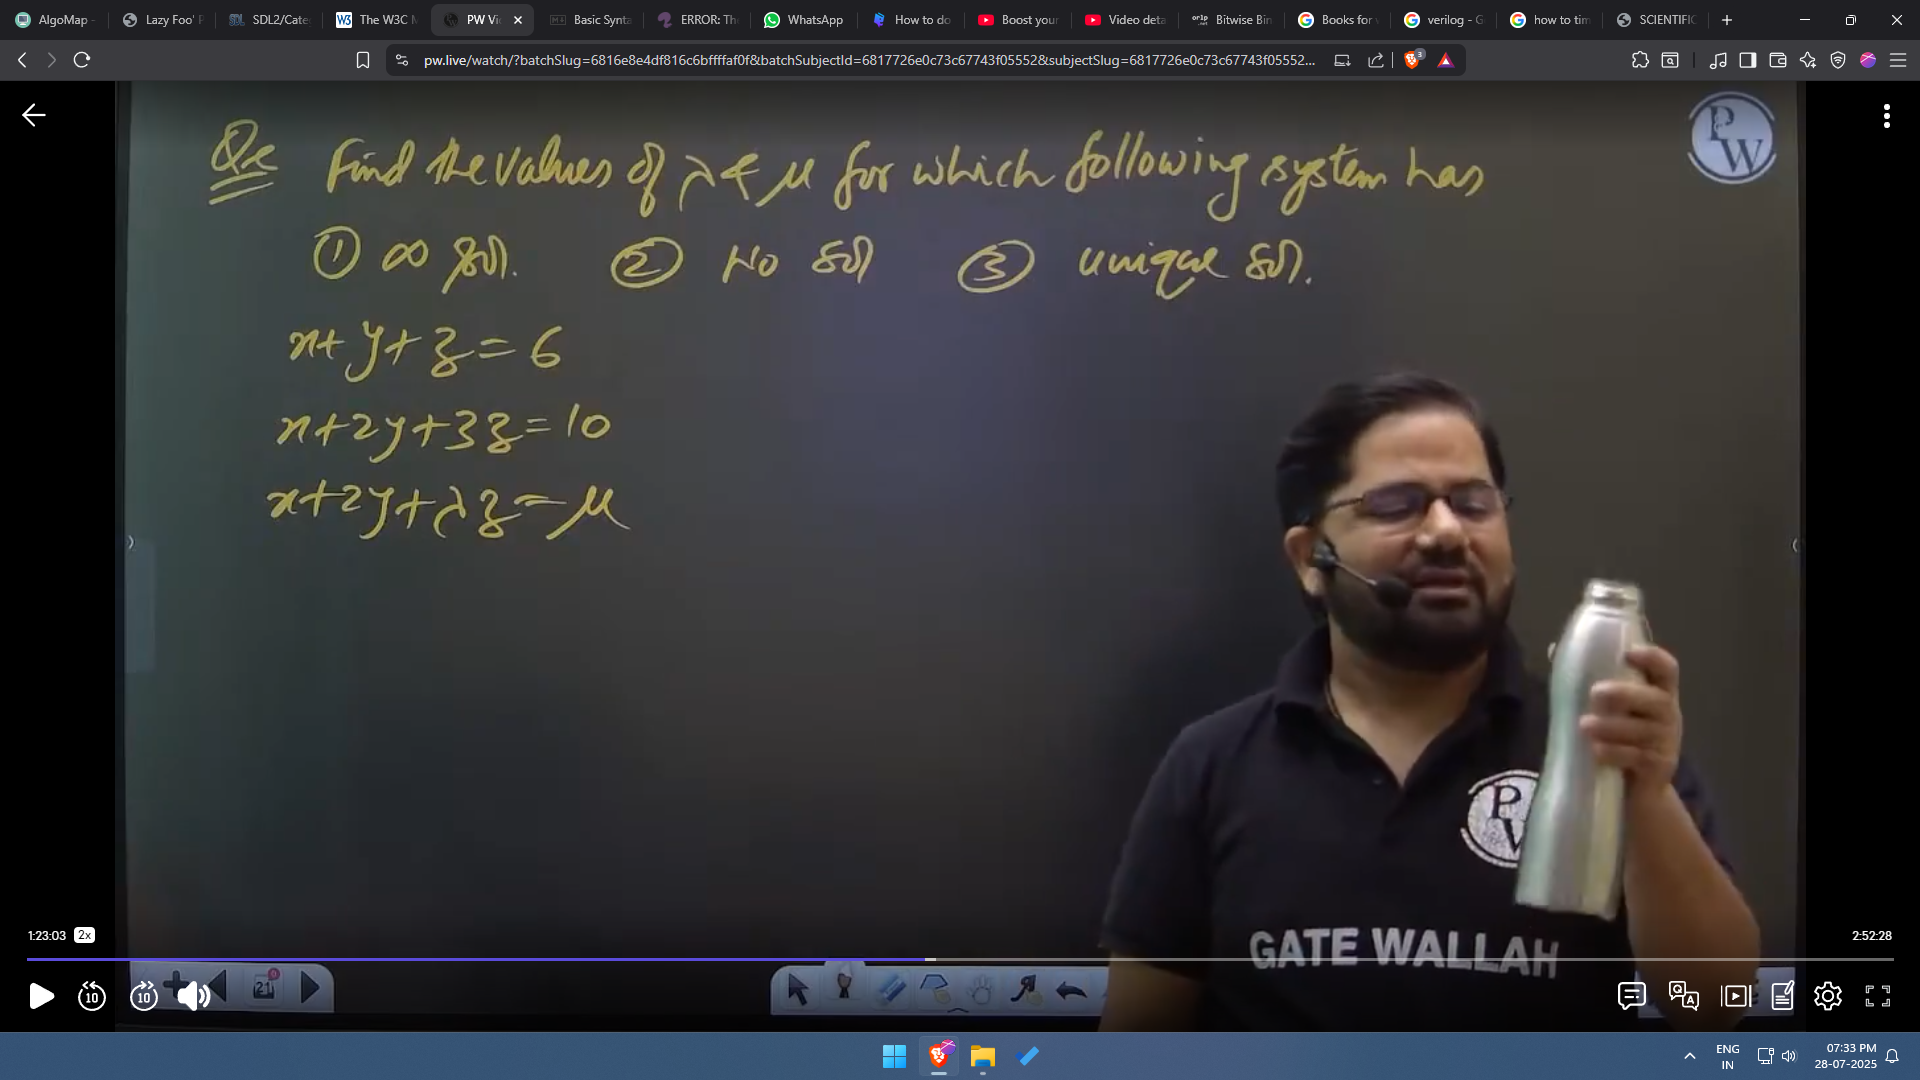 AlgoMap -
Lazy Foo' P
SDL2/Cate
The W3C M
PW Vi
Basic Synta
ERROR: Th
WhatsApp
How to do
Boost your
Video deta
Bitwise Bin
Books for v
verilog - G
how to tim
SCIENTIFIC
pw.live/watch/?batchSlug=6816e8e4df816c6bffffaf0f&batchSubjectId=6817726e0c73c67743f05552&subjectSlug=6817726e0c73c67743f05552...
3
PW
Qe Find the values of λ & μ for which following system has
① ∞ sol. ② No sol ③ unique sol.
x+y+z=6
x+2y+3z=10
x+2y+λz=μ
PW
GATE WALLAH
1:23:03 2x
2:52:28
10
10
21
9
ENG
IN
07:33 PM
28-07-2025